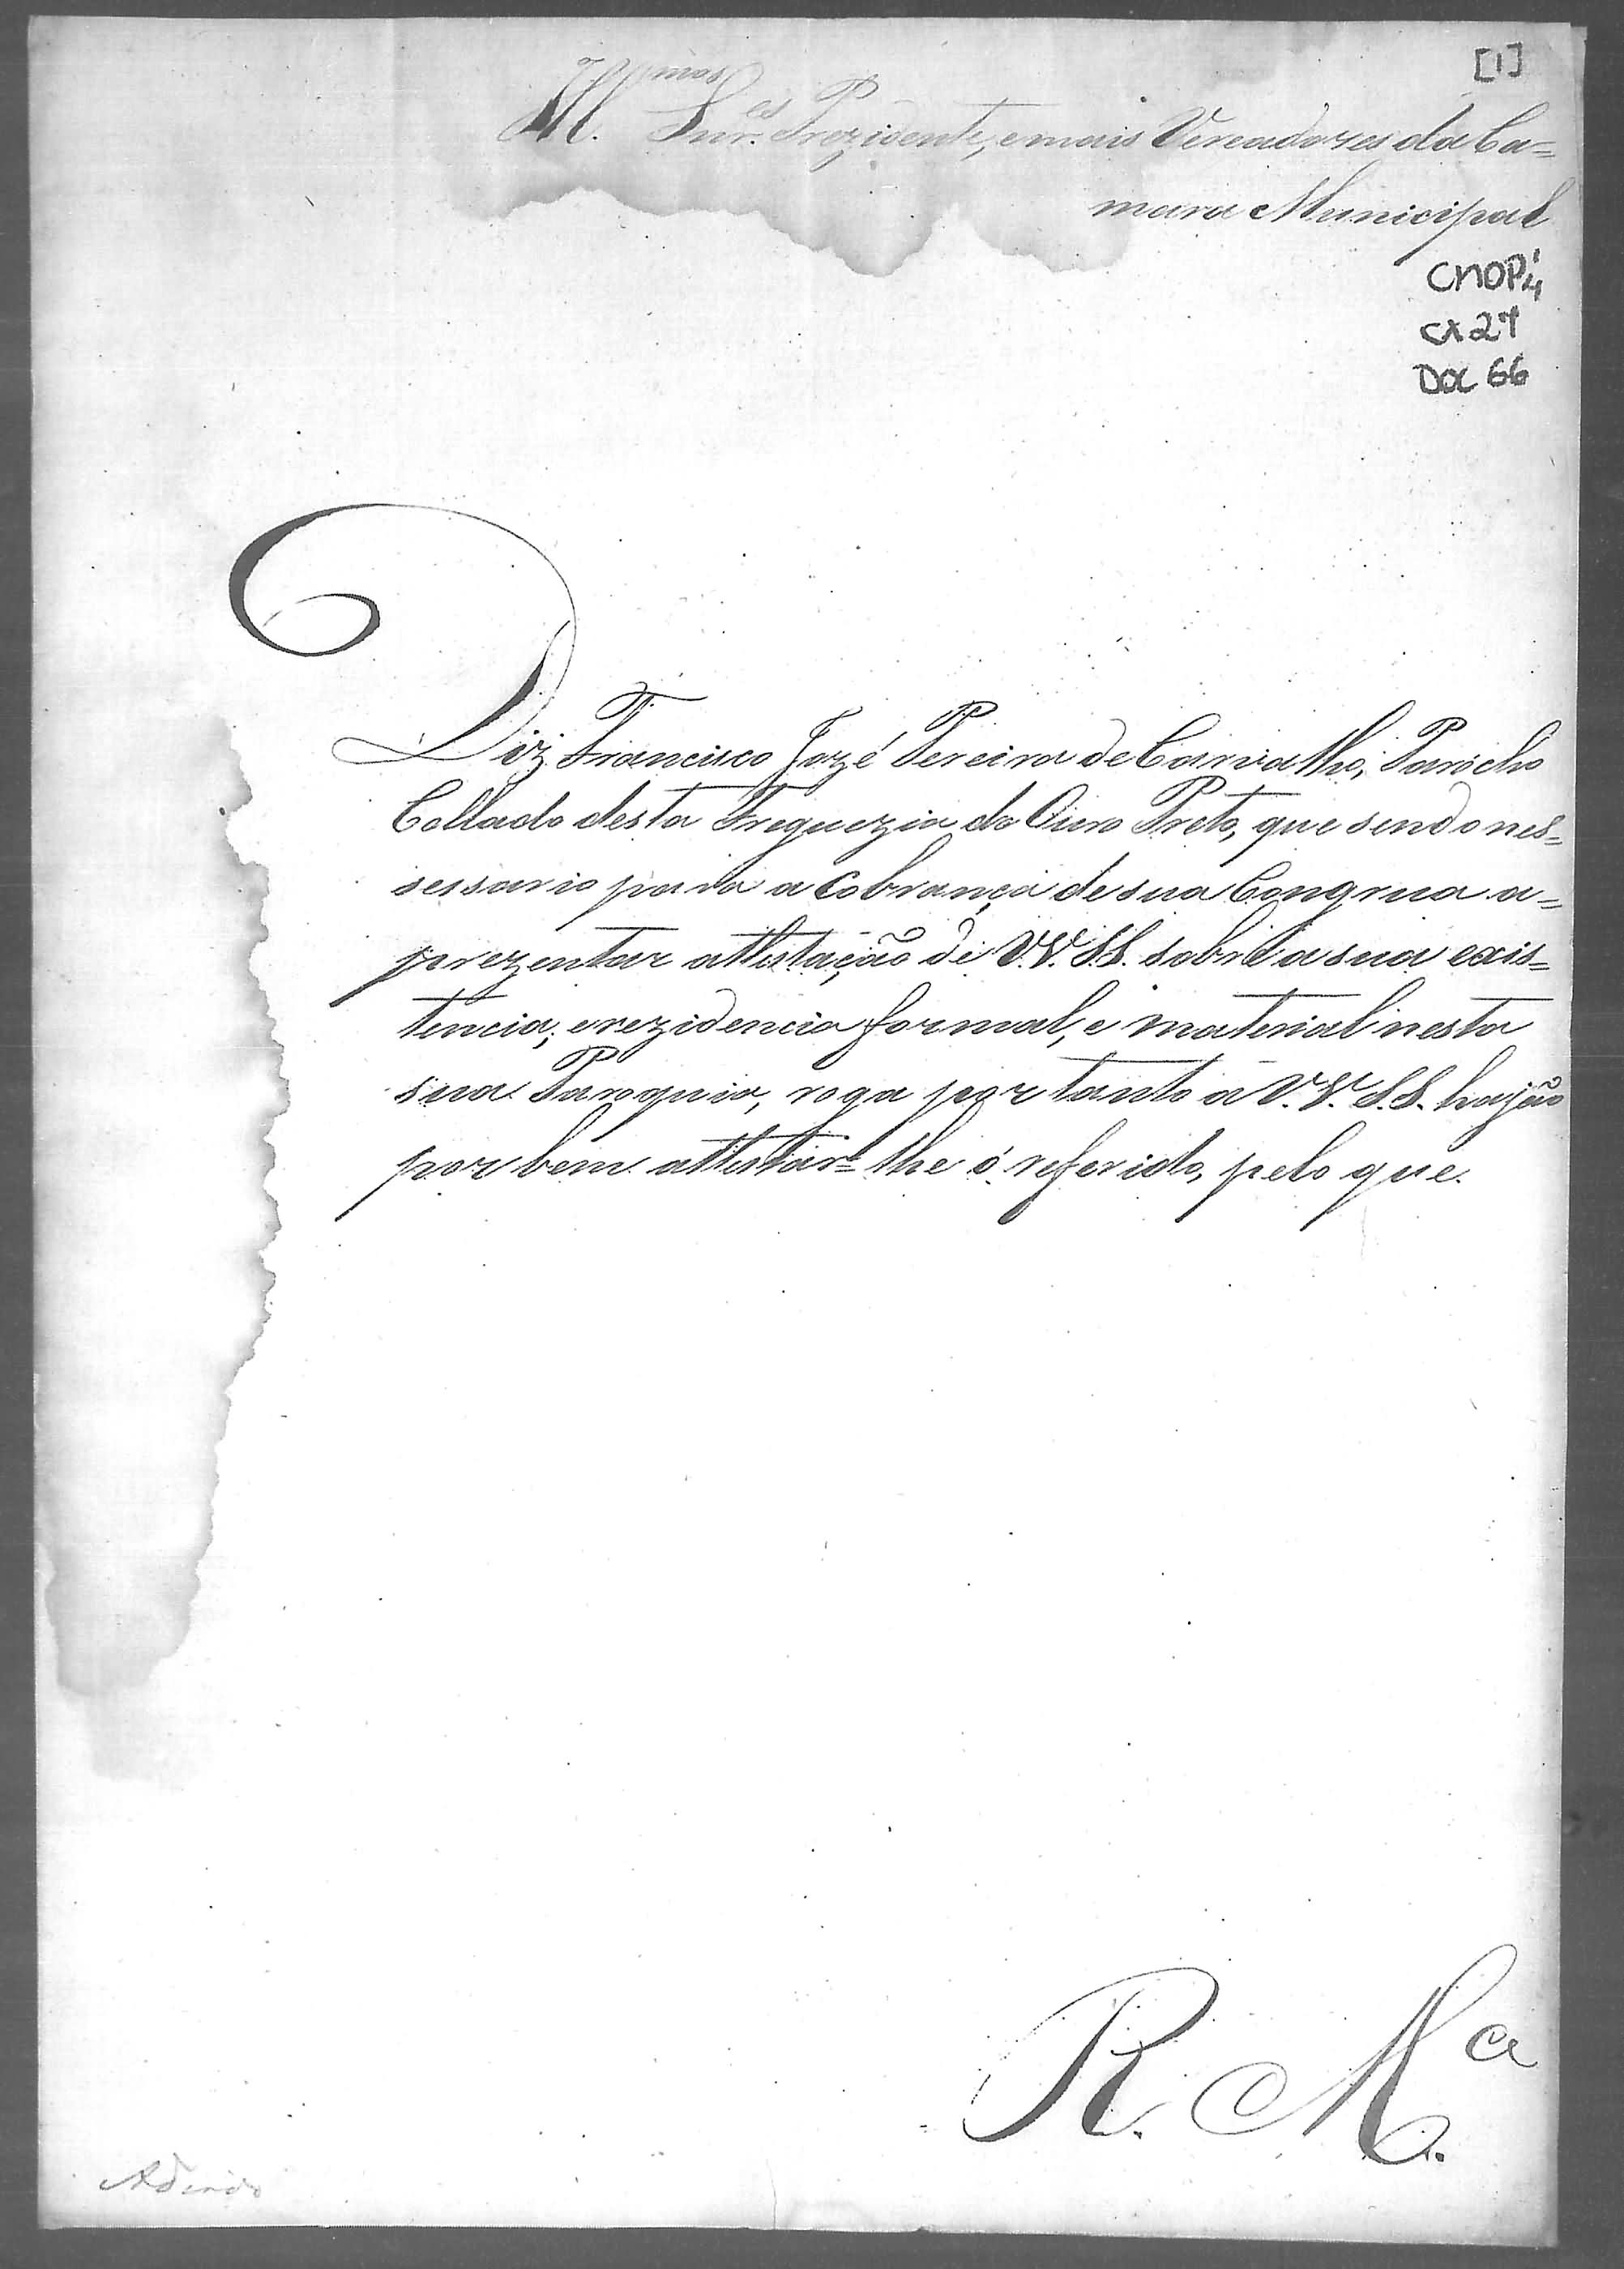 [1]
Ill.mos Snr.es Prezidente, e mais Vereadores da Ca=
mara Municipal
CMOP
CX 27
DOC 66
Diz Francisco Jozé Pereira de Carvalho, Parocho
Collado desta Freguezia do Ouro Preto, que sendo nes=
sessario para a Cobrança de sua Congrua a=
prezentar attestação de V.V. S.S. sobre a sua exis=
tencia, e rezidencia formal, e material nesta
sua Paroquia, roga por tanto a V.V. S.S. hajão
por bem attestar=lhe o referido, pelo que.
R. M.ca